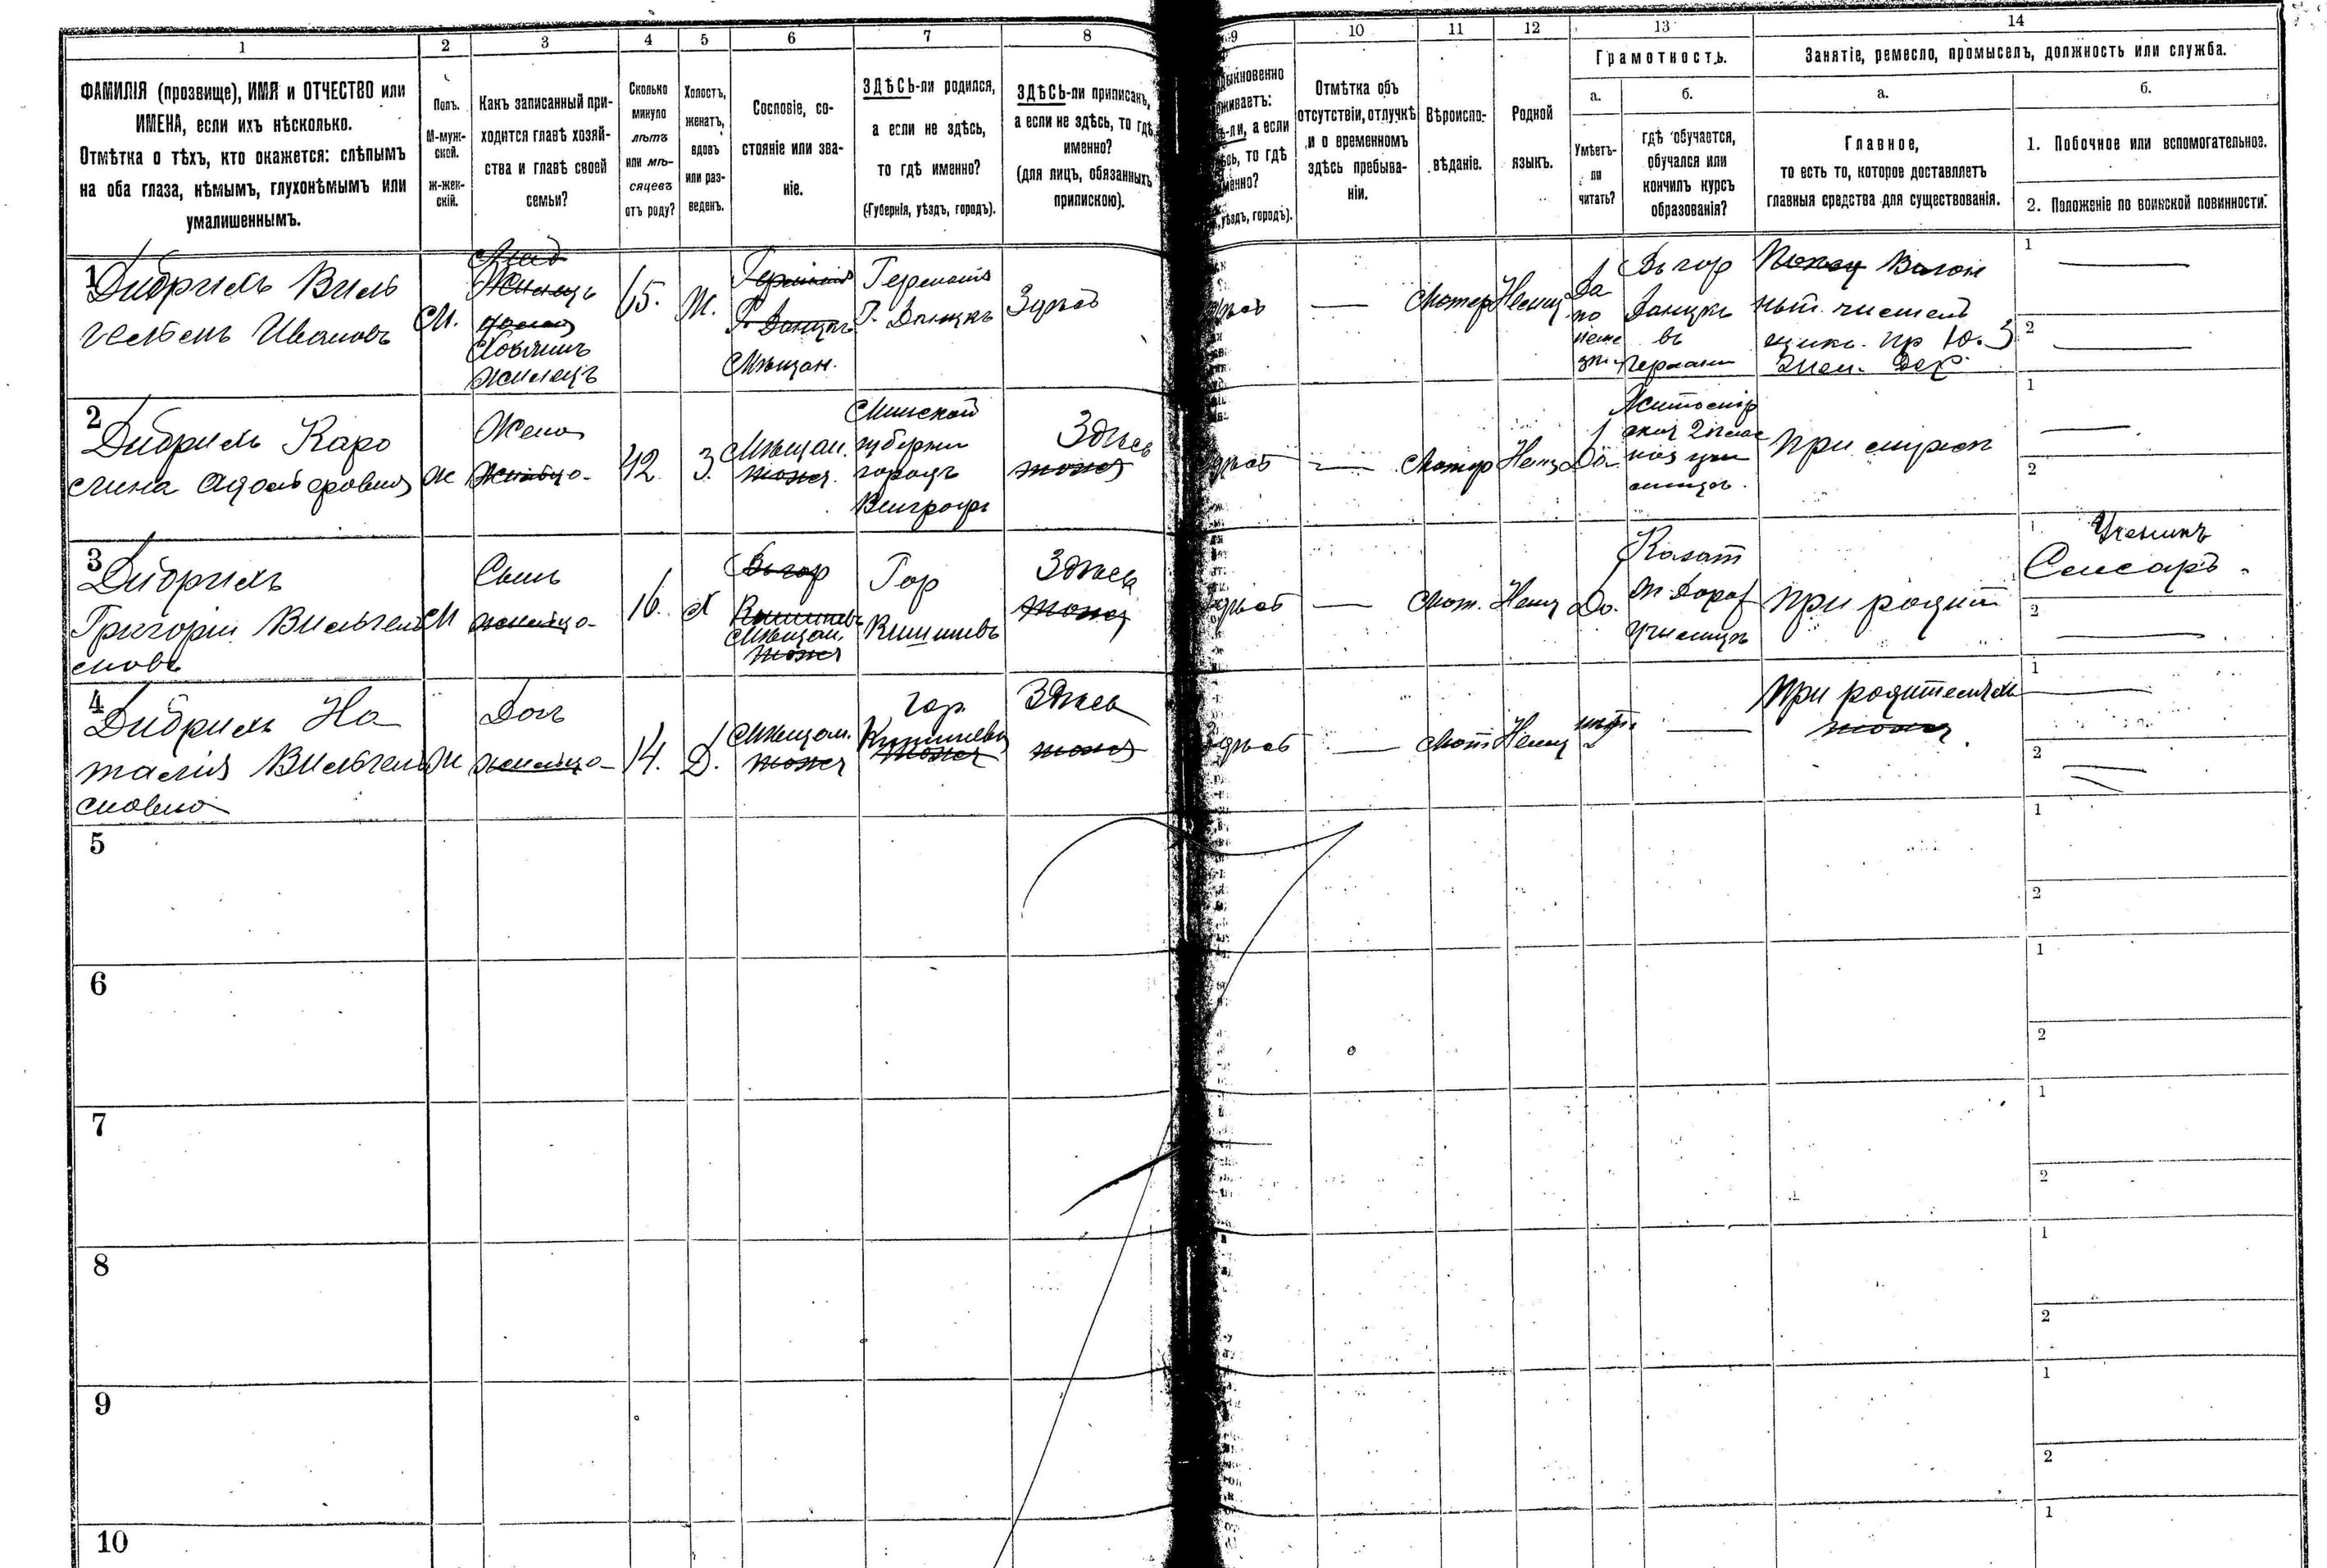 1
2
3
4
5
6
7
8
9
10
11
12
13
14
ФАМИЛІЯ (прозвище), ИМЯ и ОТЧЕСТВО или
ИМЕНА, если ихъ нѣсколько.
Отмѣтка о тѣхъ, кто окажется: слѣпымъ
на оба глаза, нѣмымъ, глухонѣмымъ или
умалишеннымъ.
Полъ.
М-муж-
ской.
ж-жен-
скій.
Какъ записанный при-
ходится главѣ хозяй-
ства и главѣ своей
семьи?
Сколько
минуло
лѣтъ
или мѣ-
сяцевъ
отъ роду?
Холостъ,
женатъ,
вдовъ
или раз-
веденъ.
Сословіе, со-
стояніе или зва-
ніе.
ЗДѢСЬ-ли родился,
а если не здѣсь,
то гдѣ именно?
(Губернія, уѣздъ, городъ).
ЗДѢСЬ-ли приписанъ,
а если не здѣсь, то гдѣ
именно?
(для лицъ, обязанныхъ
припискою).
ыкновенно
живаетъ:
ь-ли, а если
сь, то гдѣ
менно?
уѣздъ, городъ).
Отмѣтка объ
отсутствіи, отлучкѣ
и о временномъ
здѣсь пребыва-
ніи.
Вѣроиспо-
вѣданіе.
Родной
языкъ.
Грамотность.
а.
Умѣетъ-
ли
читать?
б.
гдѣ обучается,
обучался или
кончилъ курсъ
образованія?
Занятіе, ремесло, промыселъ, должность или служба.
а.
Главное,
то есть то, которое доставляетъ
главныя средства для существованія.
б.
1. Побочное или вспомогательное.
2. Положеніе по воинской повинности.
1
Дибрихъ Виль
гельмъ Ивановъ
М.
жилецъ
65.
Ж.
Германія
Г. Данцигъ
Мѣщан.
Германія
Г. Данцигъ
Здѣсь
Лютер
Немец
Да
по
Въ гор
Данцигъ
въ
Германіи
1
2
2
Дибрихъ Каро
лина Адольфовна
ж
Жена
42.
З.
Мѣщан.
тоже
Минской
губерніи
городъ
Здѣсь
тоже
Лютер
Немец
Да
При мужѣ
1
2
3
Дибрихъ
Григорій Вильгель
мовъ
М
Сынъ
16.
Х
Въ гор
Кишиневъ
Мѣщан.
тоже
Гор
Кишиневъ
Здѣсь
тоже
Лют.
Немец
Да.
училищѣ
При родит
1
Ученикъ
Слесаръ.
2
4
Дибрихъ На
талія Вильгель
мовна
ж
Дочь
14.
Д.
Мѣщан.
тоже
Гор.
Кишиневъ
тоже
Здѣсь
тоже
Лют
Немец
нѣтъ
При родителяхъ
тоже
1
2
5
1
2
6
1
2
7
1
2
8
1
2
9
1
2
10
1